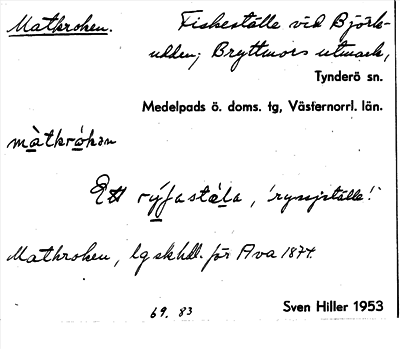 Matkroken. Fiskeställe vid Björk-
udden; Bryttmors utmark,
Tynderö sn.
Medelpads ö. doms. tg, Västernorrl. län.
màtkrókən
Ett rýfastäla, 'ryssjställe'.
Matkroken, lgskhdl. för Åva 1874.
69. 83 Sven Hiller 1953